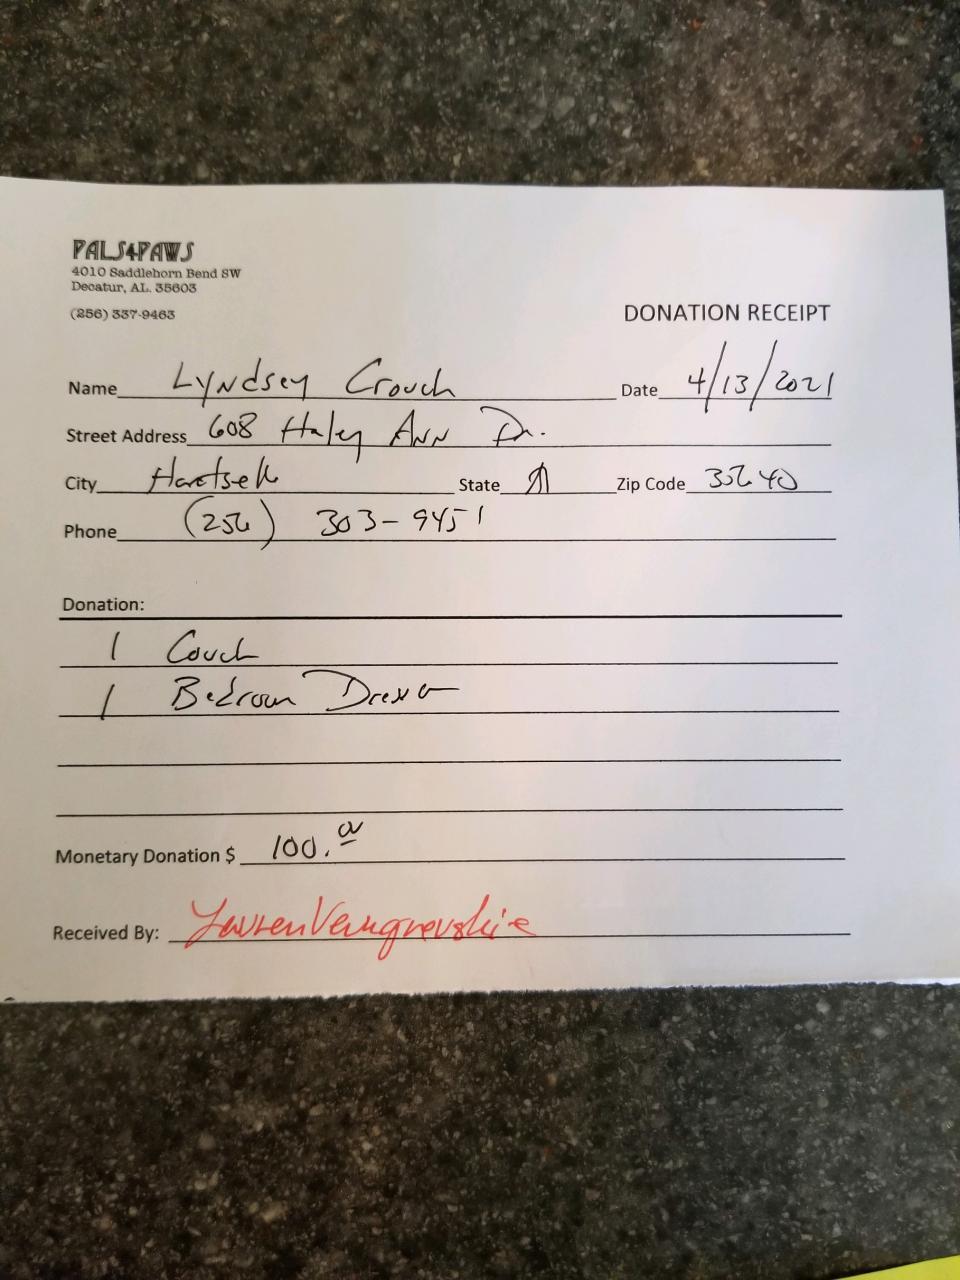 PALS4PAWS
4010 Saddlehorn Bend SW
Decatur, AL. 35603
(256) 337-9463
DONATION RECEIPT
Name Lyndsey Crouch Date 4/13/2021
Street Address 608 Haley Ann Dr.
City Hartselle State Al Zip Code 35640
Phone (256) 303-9451
Donation:
1 Couch
1 Bedroom Dresser
Monetary Donation $ 100.00
Received By: Lauren